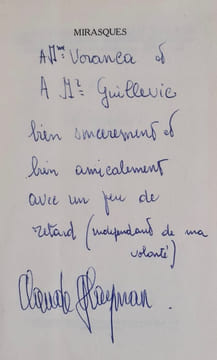 MIRASQUES
A Mme Voranca et
A Mr Guillevic
bien sincerement et
bien amicalement
avec un peu de
retard (independant de ma
volonté)
Claude Hayman.